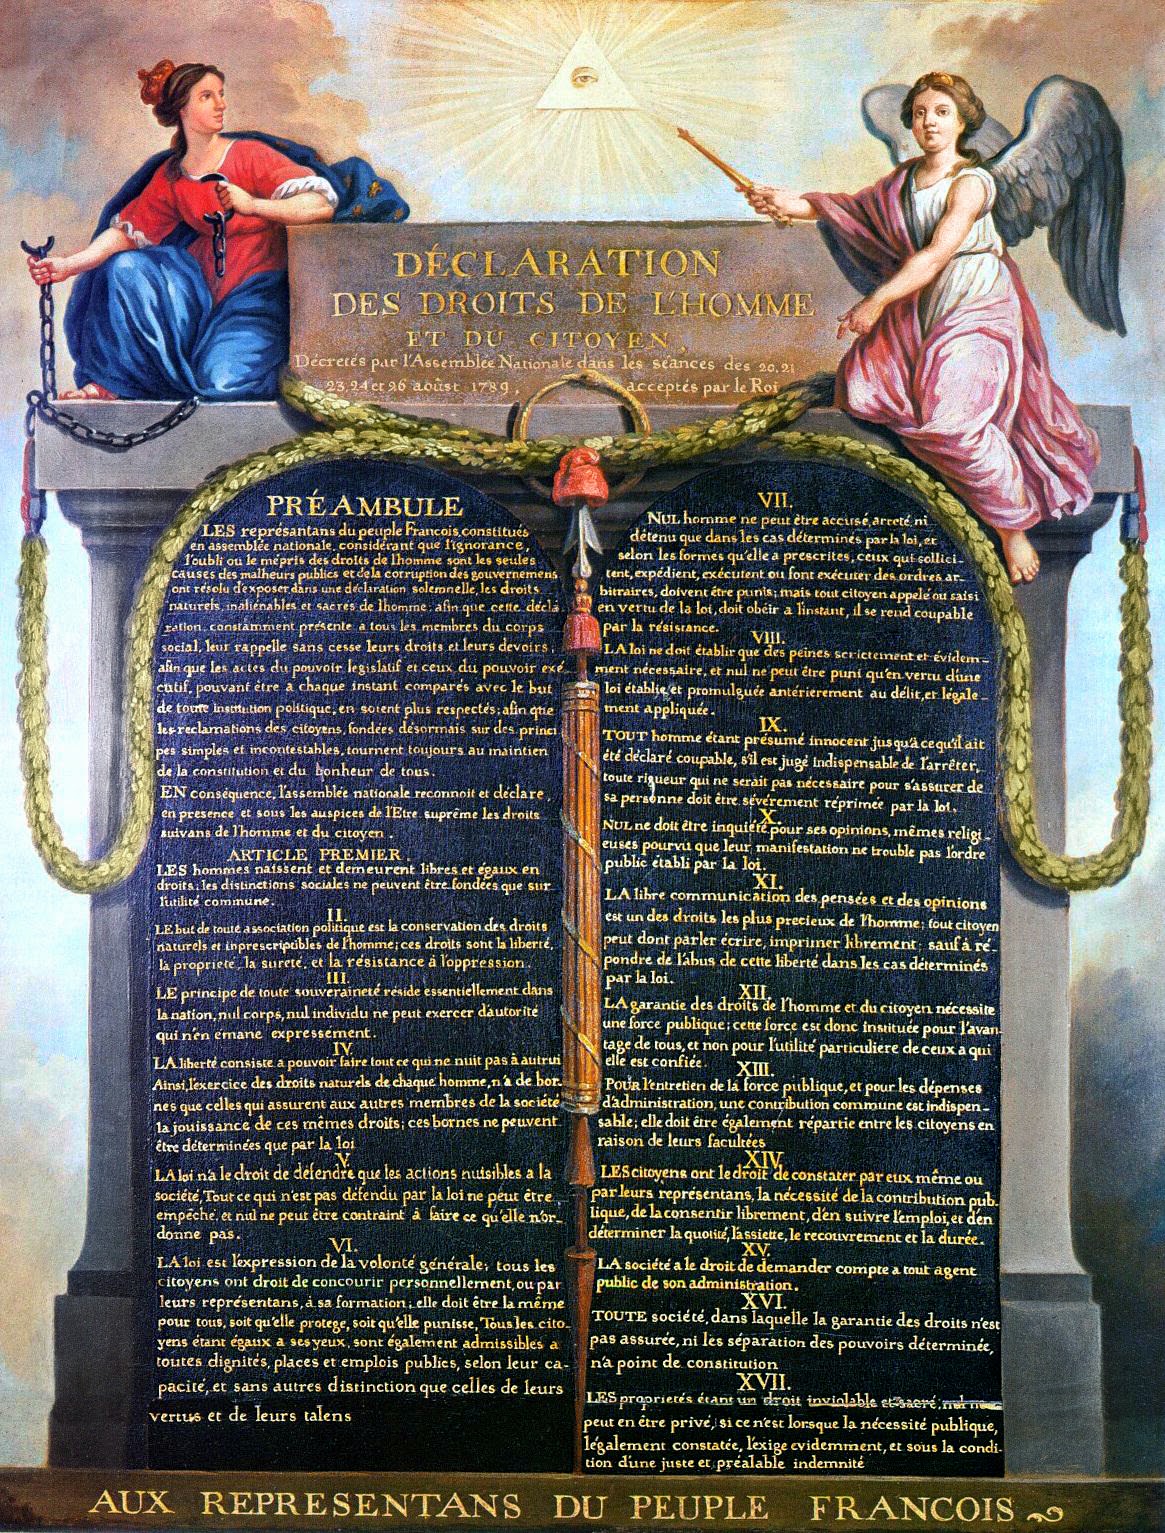 DÉCLARATION
DES DROITS DE L'HOMME
ET DU CITOYEN,
Décretés par l'Assemblée Nationale dans les séances des 20, 21
23, 24 et 26 aoûst 1789, acceptés par le Roi
PRÉAMBULE
LES représantans du peuple Francois, constitués
en assemblée nationale, considérant que l'ignorance,
l'oubli ou le mépris des droits de l'homme sont les seules
causes des malheurs publics et de la corruption des gouvernemens
ont résolu d'exposer dans une déclaration solemnelle, les droits
naturels, inaliénables et sacrés de l'homme; afin que cette décla
ration, constamment présente a tous les membres du corps
social, leur rappelle sans cesse leurs droits et leurs devoirs;
afin que les actes du pouvoir législatif et ceux du pouvoir exé
cutif, pouvant être a chaque instant comparés avec le but
de toute institution politique, en soient plus respectés; afin que
les reclamations des citoyens, fondées désormais sur des princi
pes simples et incontestables, tournent toujours au maintien
de la constitution et du bonheur de tous.
EN conséquence, l'assemblée nationale reconnoit et déclare,
en presence et sous les auspices de l'Etre suprême les droits
suivans de l'homme et du citoyen.
ARTICLE PREMIER.
LES hommes naissent et demeurent libres et égaux en
droits; les distinctions sociales ne peuvent être fondées que sur
l'utilité commune.
II.
LE but de toute association politique est la conservation des droits
naturels et inprescriptibles de l'homme; ces droits sont la liberté,
la propriété, la sureté, et la résistance à l'oppression.
III.
LE principe de toute souveraineté réside essentiellement dans
la nation, nul corps, nul individu ne peut exercer d'autorité
qui n'en émane expressément.
IV.
LA liberté consiste a pouvoir faire tout ce qui ne nuit pas à autrui
Ainsi, l'exercice des droits naturels de chaque homme, n'a de bor-
nes que celles qui assurent aux autres membres de la société
la jouissance de ces mêmes droits; ces bornes ne peuvent
être déterminées que par la loi
V.
LA loi n'a le droit de défendre que les actions nuisibles a la
société, Tout ce qui n'est pas défendu par la loi ne peut être
empêché, et nul ne peut être contraint à faire ce qu'elle n'or-
donne pas.
VI.
LA loi est l'expression de la volonté générale; tous les
citoyens ont droit de concourir personnellement, ou par
leurs représentans, à sa formation; elle doit être la même
pour tous, soit qu'elle protege, soit qu'elle punisse, Tous les cito-
yens étant égaux a ses yeux, sont également admissibles a
toutes dignités, places et emplois publics, selon leur ca-
pacité, et sans autres distinction que celles de leurs
vertus et de leurs talens
VII.
NUL homme ne peut être accusé, arreté, ni
détenu que dans les cas déterminés par la loi, et
selon les formes qu'elle a prescrites, ceux qui sollici-
tent, expédient, exécutent ou font exécuter des ordres ar-
bitraires, doivent être punis; mais tout citoyen appelé ou saisi
en vertu de la loi, doit obéir a l'instant, il se rend coupable
par la résistance.
VIII.
LA loi ne doit établir que des peines strictement et évidem-
ment nécessaire, et nul ne peut être puni qu'en vertu d'une
loi établie, et promulguée antérierement au délit, et légale-
ment appliquée.
IX.
TOUT homme étant présumé innocent jusqu'à ce qu'il ait
été déclaré coupable, s'il est jugé indispensable de l'arrêter,
toute rigueur qui ne serait pas nécessaire pour s'assurer de
sa personne doit être sévèrement réprimée par la loi.
X.
NUL ne doit être inquiété pour ses opinions, mêmes religi-
euses pourvu que leur manifestation ne trouble pas l'ordre
public établi par la loi.
XI.
LA libre communication des pensées et des opinions
est un des droits les plus precieux de l'homme; tout citoyen
peut dont parler écrire, imprimer librement; sauf à ré-
pondre de l'abus de cette liberté dans les cas déterminés
par la loi.
XII.
LA garantie des droits de l'homme et du citoyen nécessite
une force publique; cette force est donc instituée pour l'avan-
tage de tous, et non pour l'utilité particuliere de ceux a qui
elle est confiée.
XIII.
POUR l'entretien de la force publique, et pour les dépenses
d'administration, une contribution commune est indispen-
sable; elle doit être également répartie entre les citoyens en
raison de leurs facultées
XIV.
LES citoyens ont le droit de constater par eux même ou
par leurs représentans, la nécessité de la contribution pub-
lique, de la consentir librement, d'en suivre l'emploi, et d'en
déterminer la quotité, l'assiette, le recouvrement et la durée.
XV.
LA société a le droit de demander compte a tout agent
public de son administration.
XVI.
TOUTE société, dans laquelle la garantie des droits n'est
pas assurée, ni les séparation des pouvoirs déterminée,
n'a point de constitution
XVII.
LES proprietés étant un droit inviolable et sacré, nul ne
peut en être privé, si ce n'est lorsque la nécessité publique,
légalement constatée, l'exige evidemment, et sous la condi-
tion d'une juste et préalable indemnité
AUX REPRESENTANS DU PEUPLE FRANCOIS